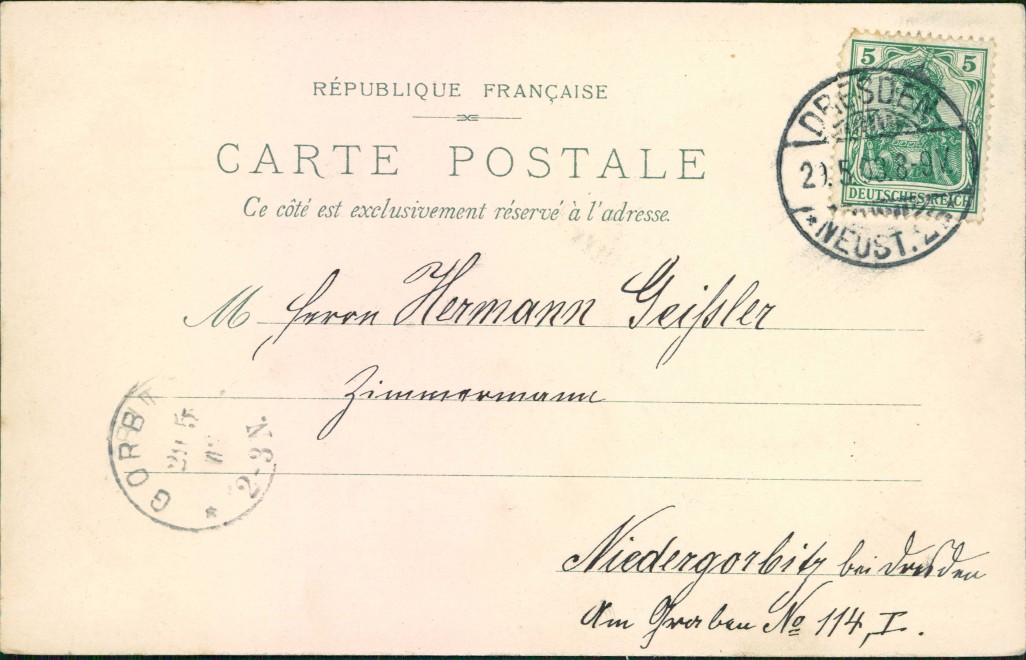 RÉPUBLIQUE FRANÇAISE
CARTE POSTALE
Ce côté est exclusivement réservé à l'adresse.
5 5
DEUTSCHES REICH
DRESDEN
5.03.8-9V.
*NEUST.
M Herrn Hermann Geißler
Zimmermann
GORB
29 5
2-3N.
*
Niedergorbitz bei Dresden
Am Graben No 114, I.